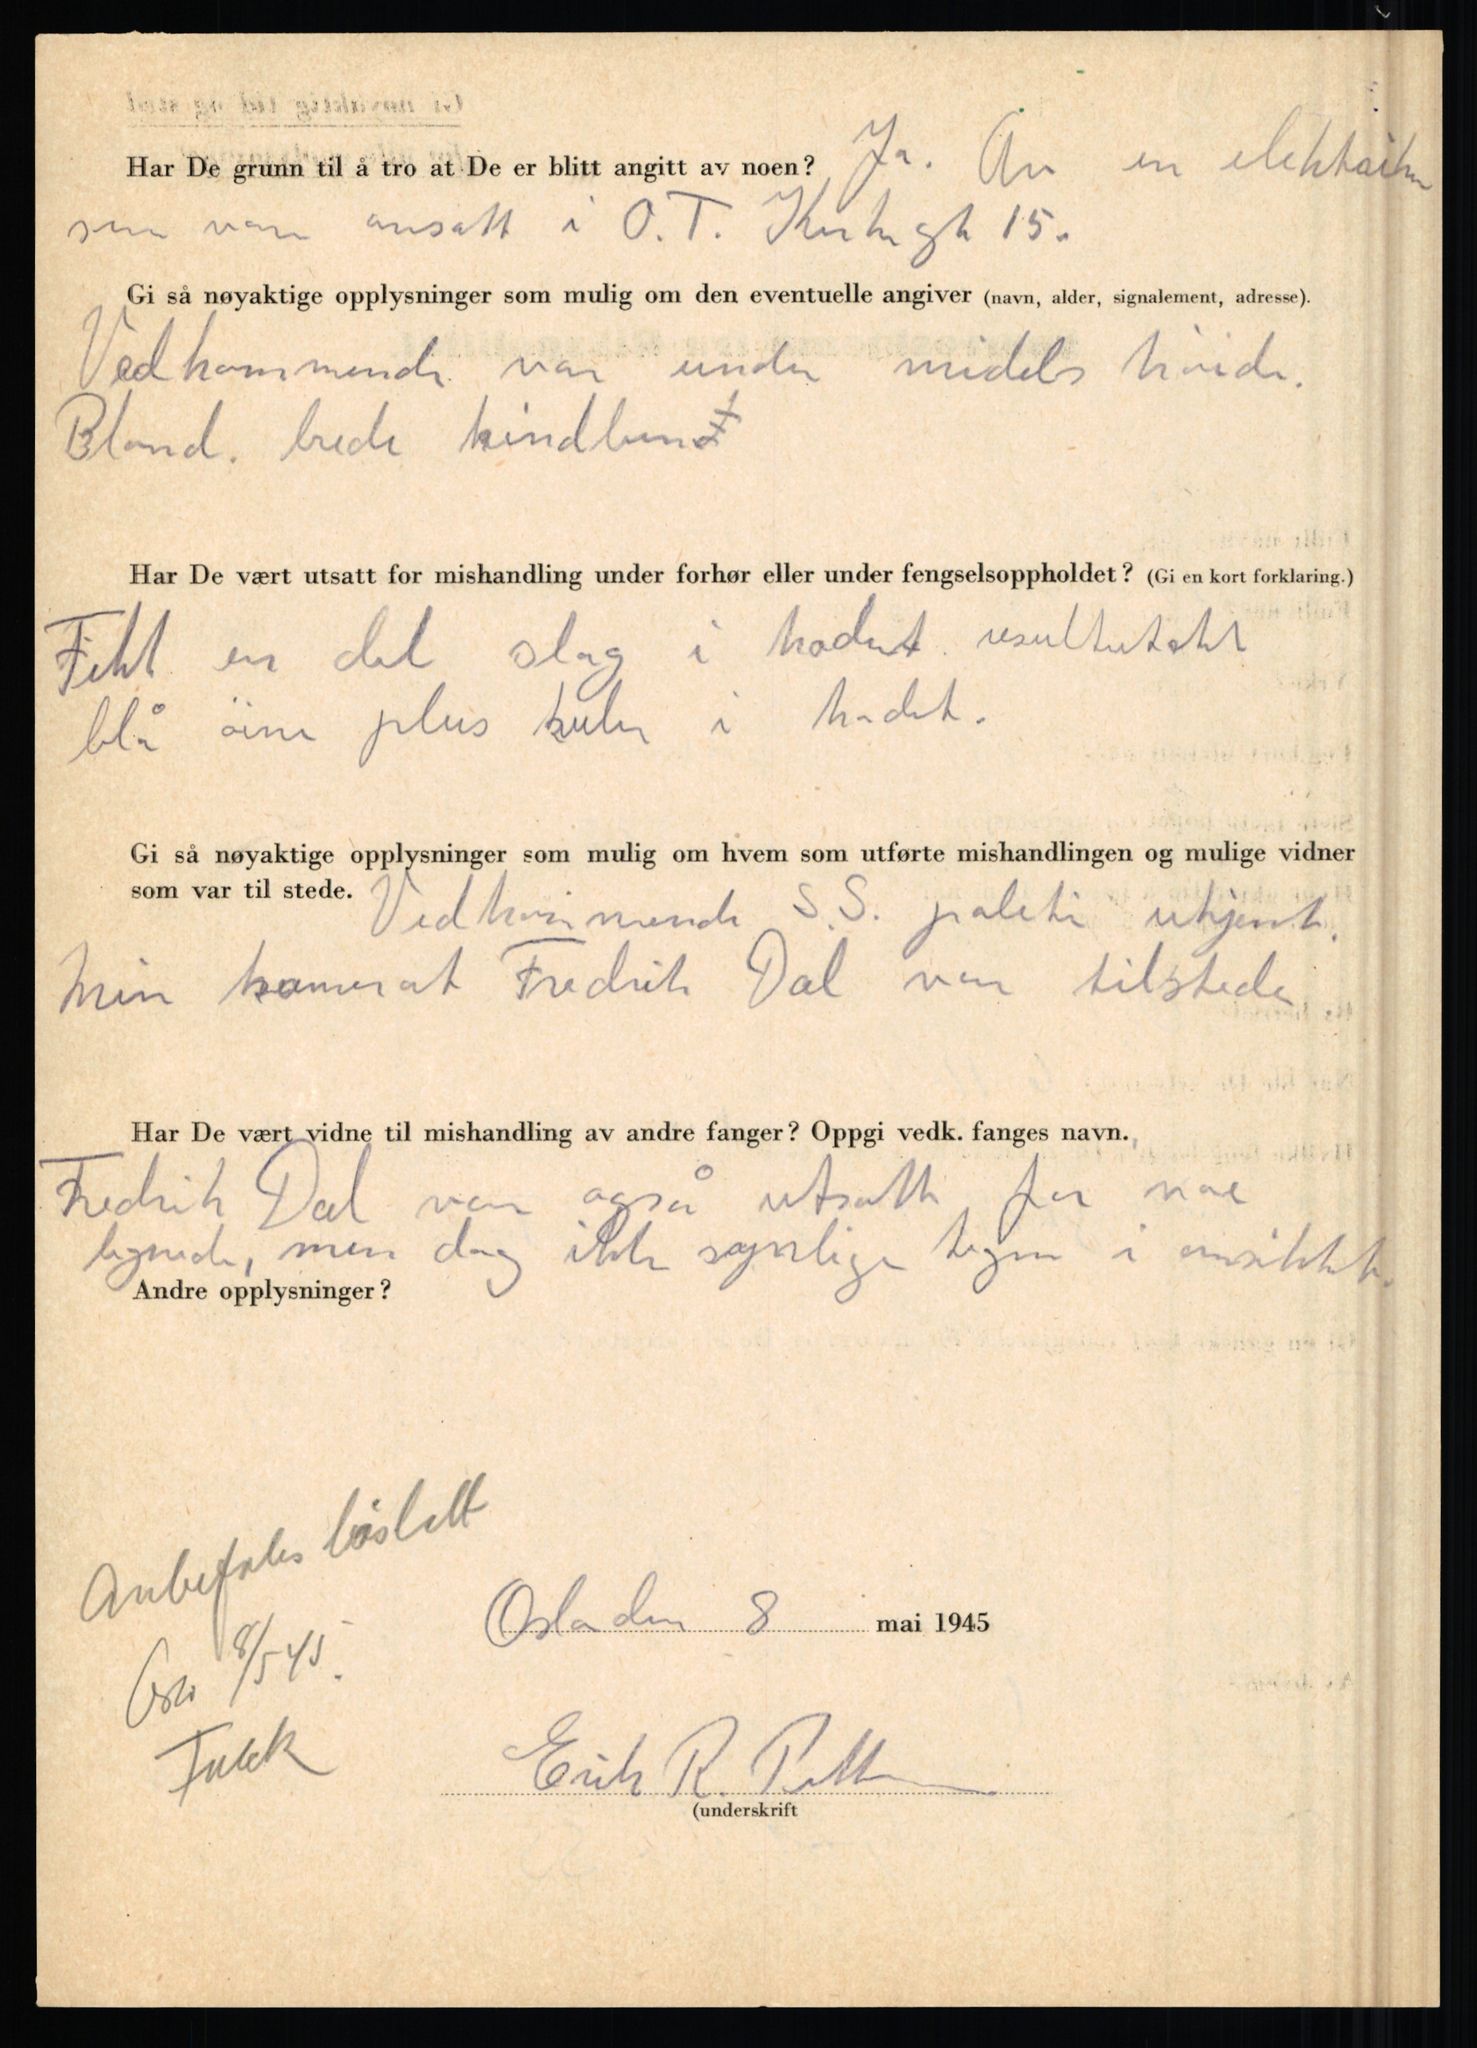 Har De grunn til å tro at De er blitt angitt av noen? Ja. Av en elektriker
som var ansatt i O.T. 15.
Gi så nøyaktige opplysninger som mulig om den eventuelle angiver (navn, alder, signalement, adresse).
Vedkommende var under middels höide.
Blond. brede kindben
Har De vært utsatt for mishandling under forhør eller under fengselsoppholdet? (Gi en kort forklaring.)
Fikk en del slag i hodet resultatet
blå öine plus kuler i hodet.
Gi så nøyaktige opplysninger som mulig om hvem som utførte mishandlingen og mulige vidner
som var til stede. Vedkommende S.S. politi ukjent.
Min kamerat Fredrik Dal var tilstede
Har De vært vidne til mishandling av andre fanger? Oppgi vedk. fanges navn.
Fredrik Dal var også utsatt for noe
lignede, men dog ikke synlige tegn i ansiktet.
Andre opplysninger?
Anbefales löslatt
Oslo 8/5 45.
Falck
Oslo den 8 mai 1945
Erik R.
(underskrift